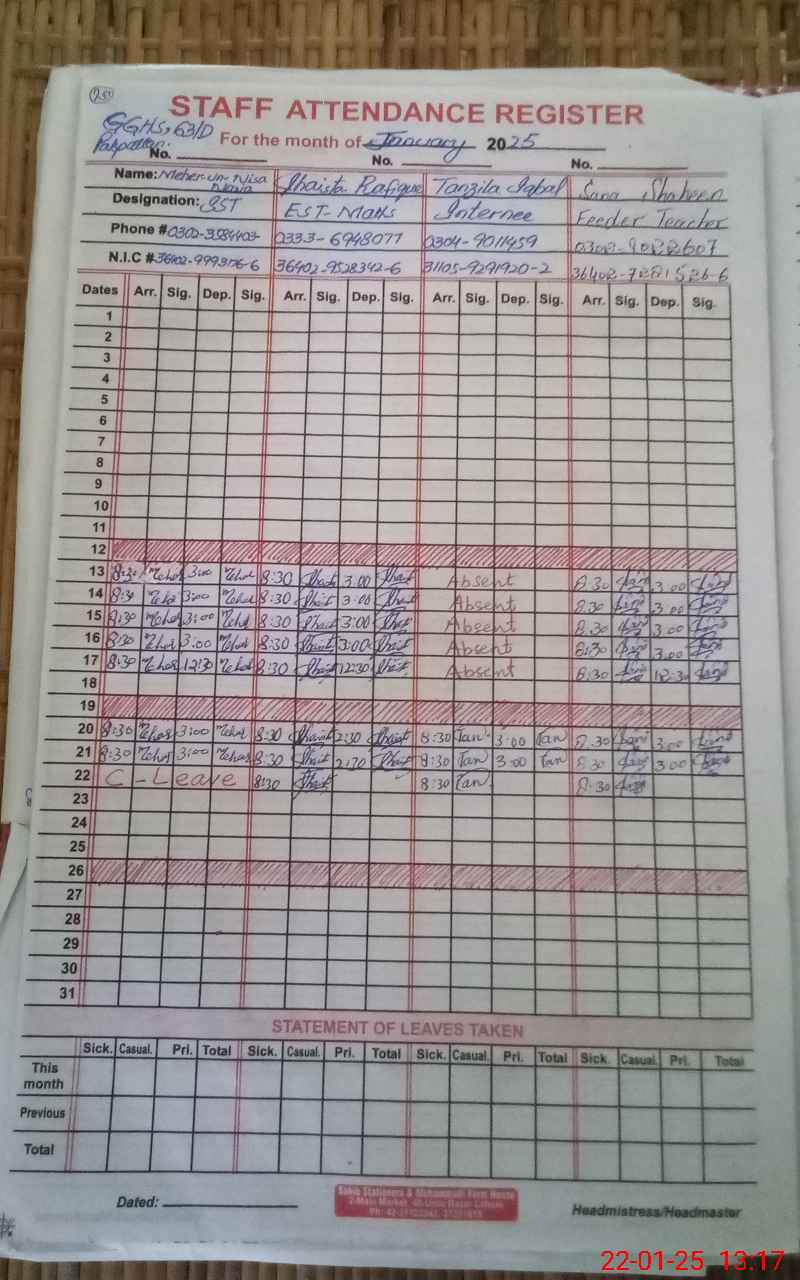 STAFF ATTENDANCE REGISTER
GGHS, 63/D
For the month of January 2025
No. No. No.
Name: Meher-un-Nisa Shaista Rafique Tanzila Iqbal Sana Shaheen
Designation: EST-Maths Internee Feeder Teacher
Phone # 0333-6948077 0304-9011459
N.I.C # 36402-9528342-6 31105-9291920-2
Dates Arr. Sig. Dep. Sig. Arr. Sig. Dep. Sig. Arr. Sig. Dep. Sig. Arr. Sig. Dep. Sig.
1
2
3
4
5
6
7
8
9
10
11
12
13 8:30 Mehar 3:00 Mehar 8:30 Shaist 3:00 Shaist Absent 8:30 3:00
14 8:30 Mehar 3:00 Mehar 8:30 Shaist 3:00 Shaist Absent 8:30 3:00
15 8:30 Mehar 3:00 Mehar 8:30 Shaist 3:00 Shaist Absent 8:30 3:00
16 8:30 Mehar 3:00 Mehar 8:30 Shaist 3:00 Shaist Absent 8:30 3:00
17 8:30 Mehar 12:30 Mehar 8:30 Shaist 12:30 Shaist Absent 8:30 12:30
18
19
20 8:30 Mehar 3:00 Mehar 8:30 Shaist 2:30 Shaist 8:30 Tan 3:00 Tan 8:30 3:00
21 8:30 Mehar 3:00 Mehar 8:30 Shaist 2:30 Shaist 8:30 Tan 3:00 Tan 8:30 3:00
22 C-Leave 8:30 Shaist 8:30 Tan 8:30
23
24
25
26
27
28
29
30
31
STATEMENT OF LEAVES TAKEN
Sick. Casual. Pri. Total Sick. Casual. Pri. Total Sick. Casual. Pri. Total Sick. Casual. Pri. Total
This month
Previous
Total
Dated: Headmistress/Headmaster
22-01-25 13:17